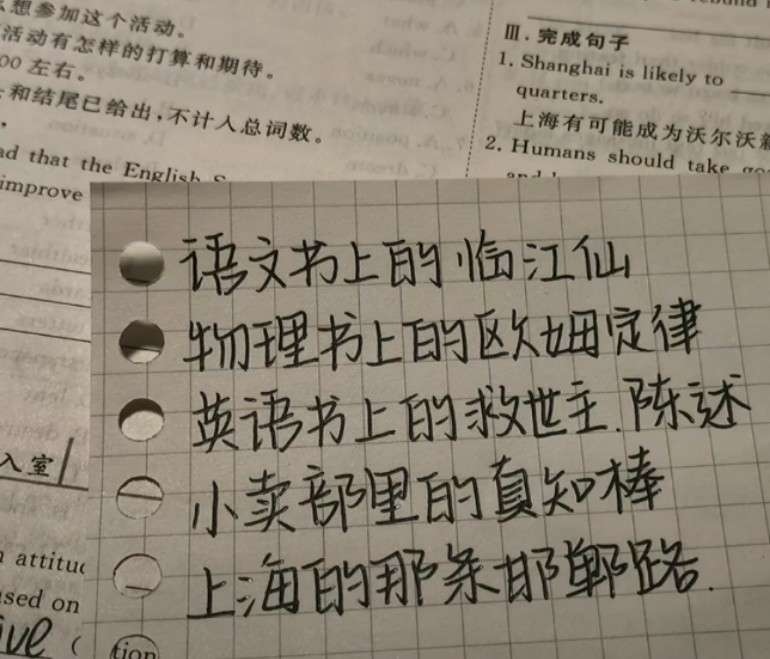 想参加这个活动。
活动有怎样的打算和期待。
00 左右。
和结尾已给出,不计入总词数。
ad that the English
improve
Ⅲ.完成句子
1. Shanghai is likely to
quarters.
上海有可能成为沃尔沃
2. Humans should take
语文书上的临江仙
物理书上的欧姆定律
英语书上的救世主.陈述
小卖部里的真知棒
上海的那条邯郸路.
入室
attitu
sed on
ive (
tion